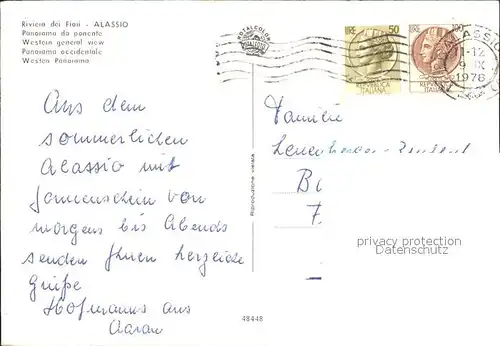 Riviera dei Fiori - ALASSIO
Panorama da ponente
Western general view
Panorama occidentale
Westen Panorama
ROTALCOLOR
LIRE 50
REPVBBLICA
ITALIANA
LIRE 100
REPVBBLICA
ITALIANA
ALASSIO
11-12
9 IX
1978
Aus dem
sommerlichen
Alassio mit
Sonnenschein von
morgens bis Abends
senden Ihnen herzliche
Grüße
Hofmanns aus
Aarau
Riproduzione vietata
48448
Familie
B
privacy protection
Datenschutz